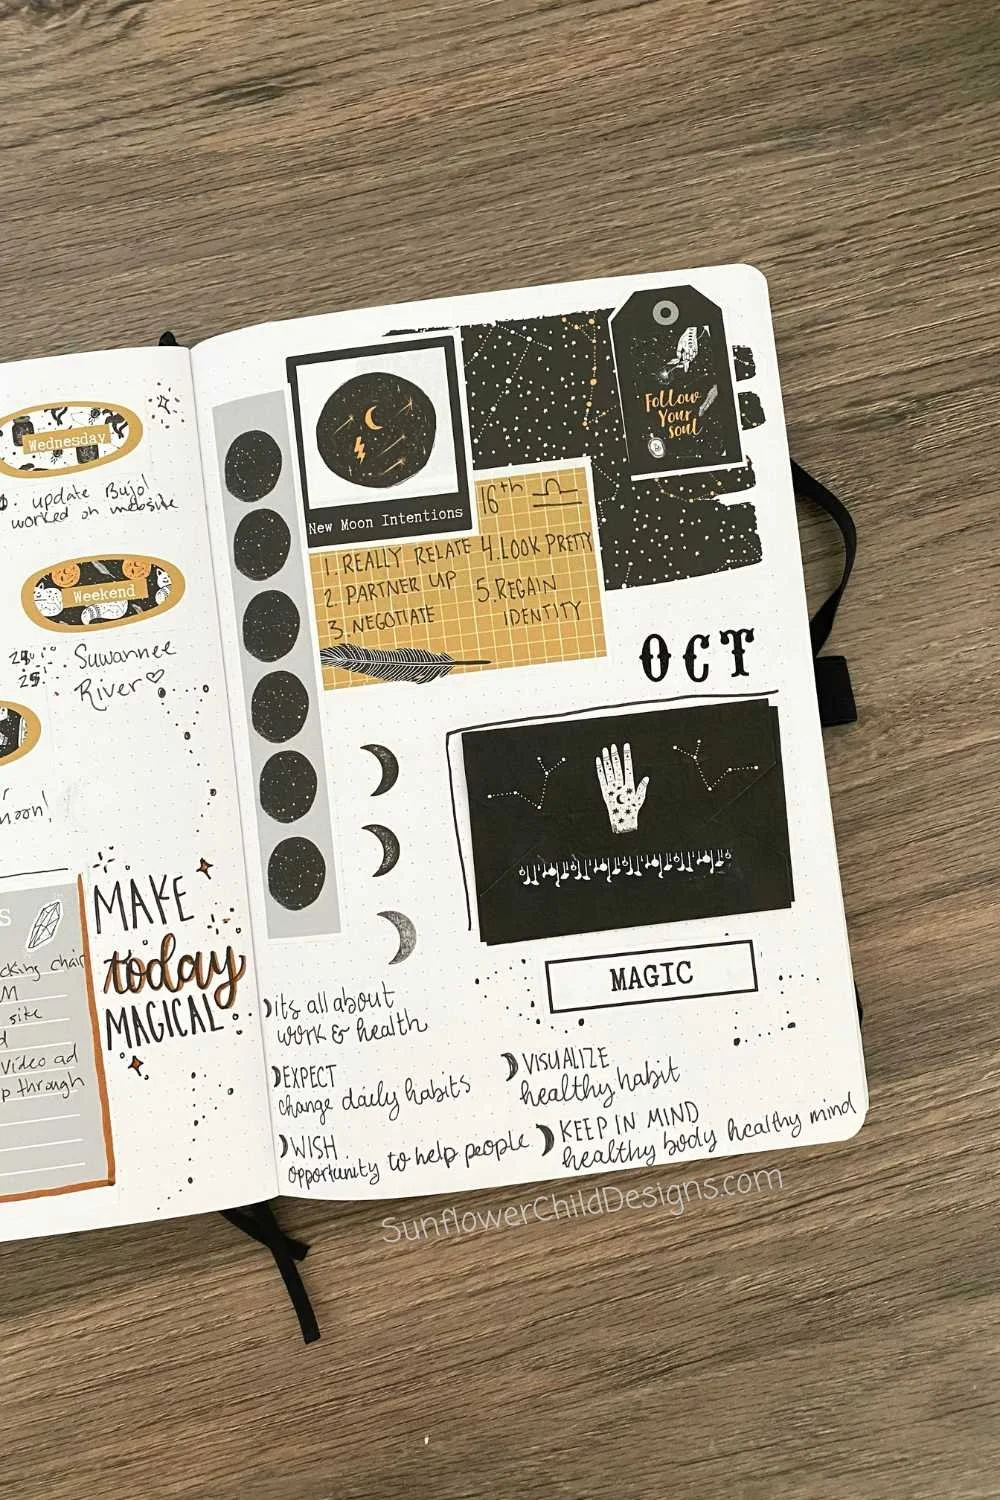 Wednesday
update Bujo!
worked on website
Weekend
Suwannee
River
25
moon!
S
cking chair
M
site
d
video ad
p through
MAKE
today
MAGICAL
New Moon Intentions
Follow
Your
soul
16th
1. REALLY RELATE
2. PARTNER UP
3. NEGOTIATE
4. LOOK PRETTY
5. REGAIN
IDENTITY
OCT
MAGIC
its all about
work & health
EXPECT
change daily habits
WISH
opportunity to help people
VISUALIZE
healthy habit
KEEP IN MIND
healthy body healthy mind
SunflowerChildDesigns.com